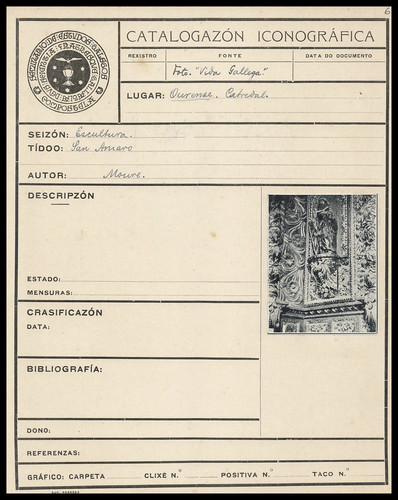 6
CATALOGAZÓN ICONOGRÁFICA
REXISTRO FONTE DATA DO DOCUMENTO
Foto. "Vida Gallega"
LUGAR: Ourense. Catredal.
SEIZÓN: Escultura.
TÍDOO: San Amaro
AUTOR: Moure.
DESCRIPZÓN
ESTADO:
MENSURAS:
CRASIFICAZÓN
DATA:
BIBLIOGRAFÍA:
DONO:
REFERENZAS:
GRÁFICO: CARPETA CLIXÉ N.º POSITIVA N.º TACO N.º